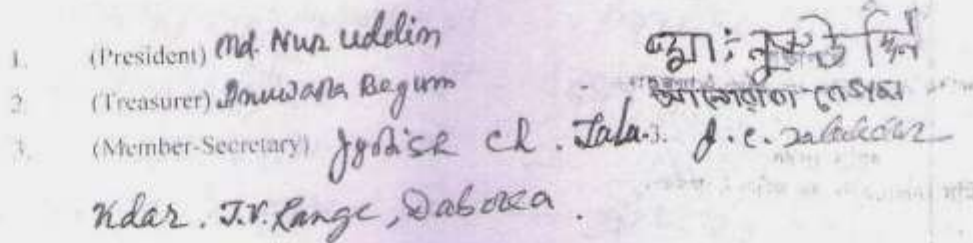 1. (President) Md. Nur uddin মোঃ নুর উদ্দিন
2. (Treasurer) Anuwara Begum আনোৱাৰা বেগম
3. (Member-Secretary) Jyotish Ch. Talu- 3. J. C. Talukdar
Kdar. J.V. Range, Daboka.